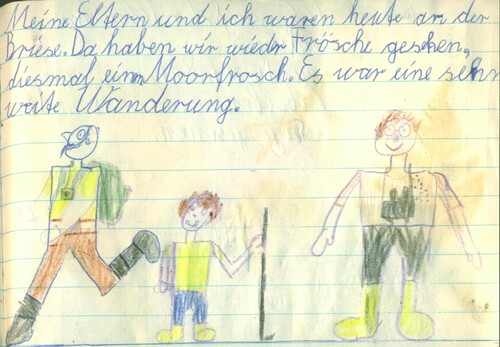 Meine Eltern und ich waren heute an der
Briese. Da haben wir wiedr Frösche gesehen,
diesmal einn Moorfrosch. Es war eine sehr
weite Wanderung.